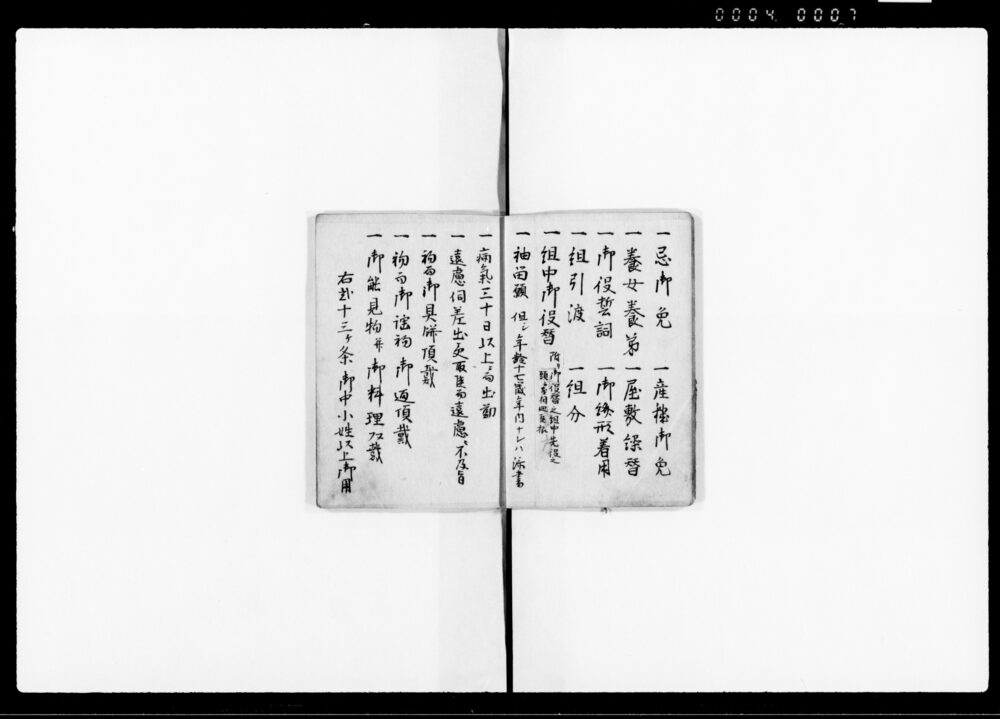 0004 0007
一 忌御免 一 産穢御免
一 養女養弟 一 屋敷繰替
一 御役誓詞 一 御紋形着用
一 組引渡 一 組分
一 組中御役替 附、御役替之組中先役之
一 袖留願 但シ年齢十七歳年内ナレハ添書
一 病氣三十日以上ニ而出勤
一 遠慮伺差出候而遠慮ニ不及旨
一 初而御具餅頂戴
一 初而御謡初御通頂戴
一 御能見物并御料理頂戴
右貳十三ヶ条御中小姓以上御用